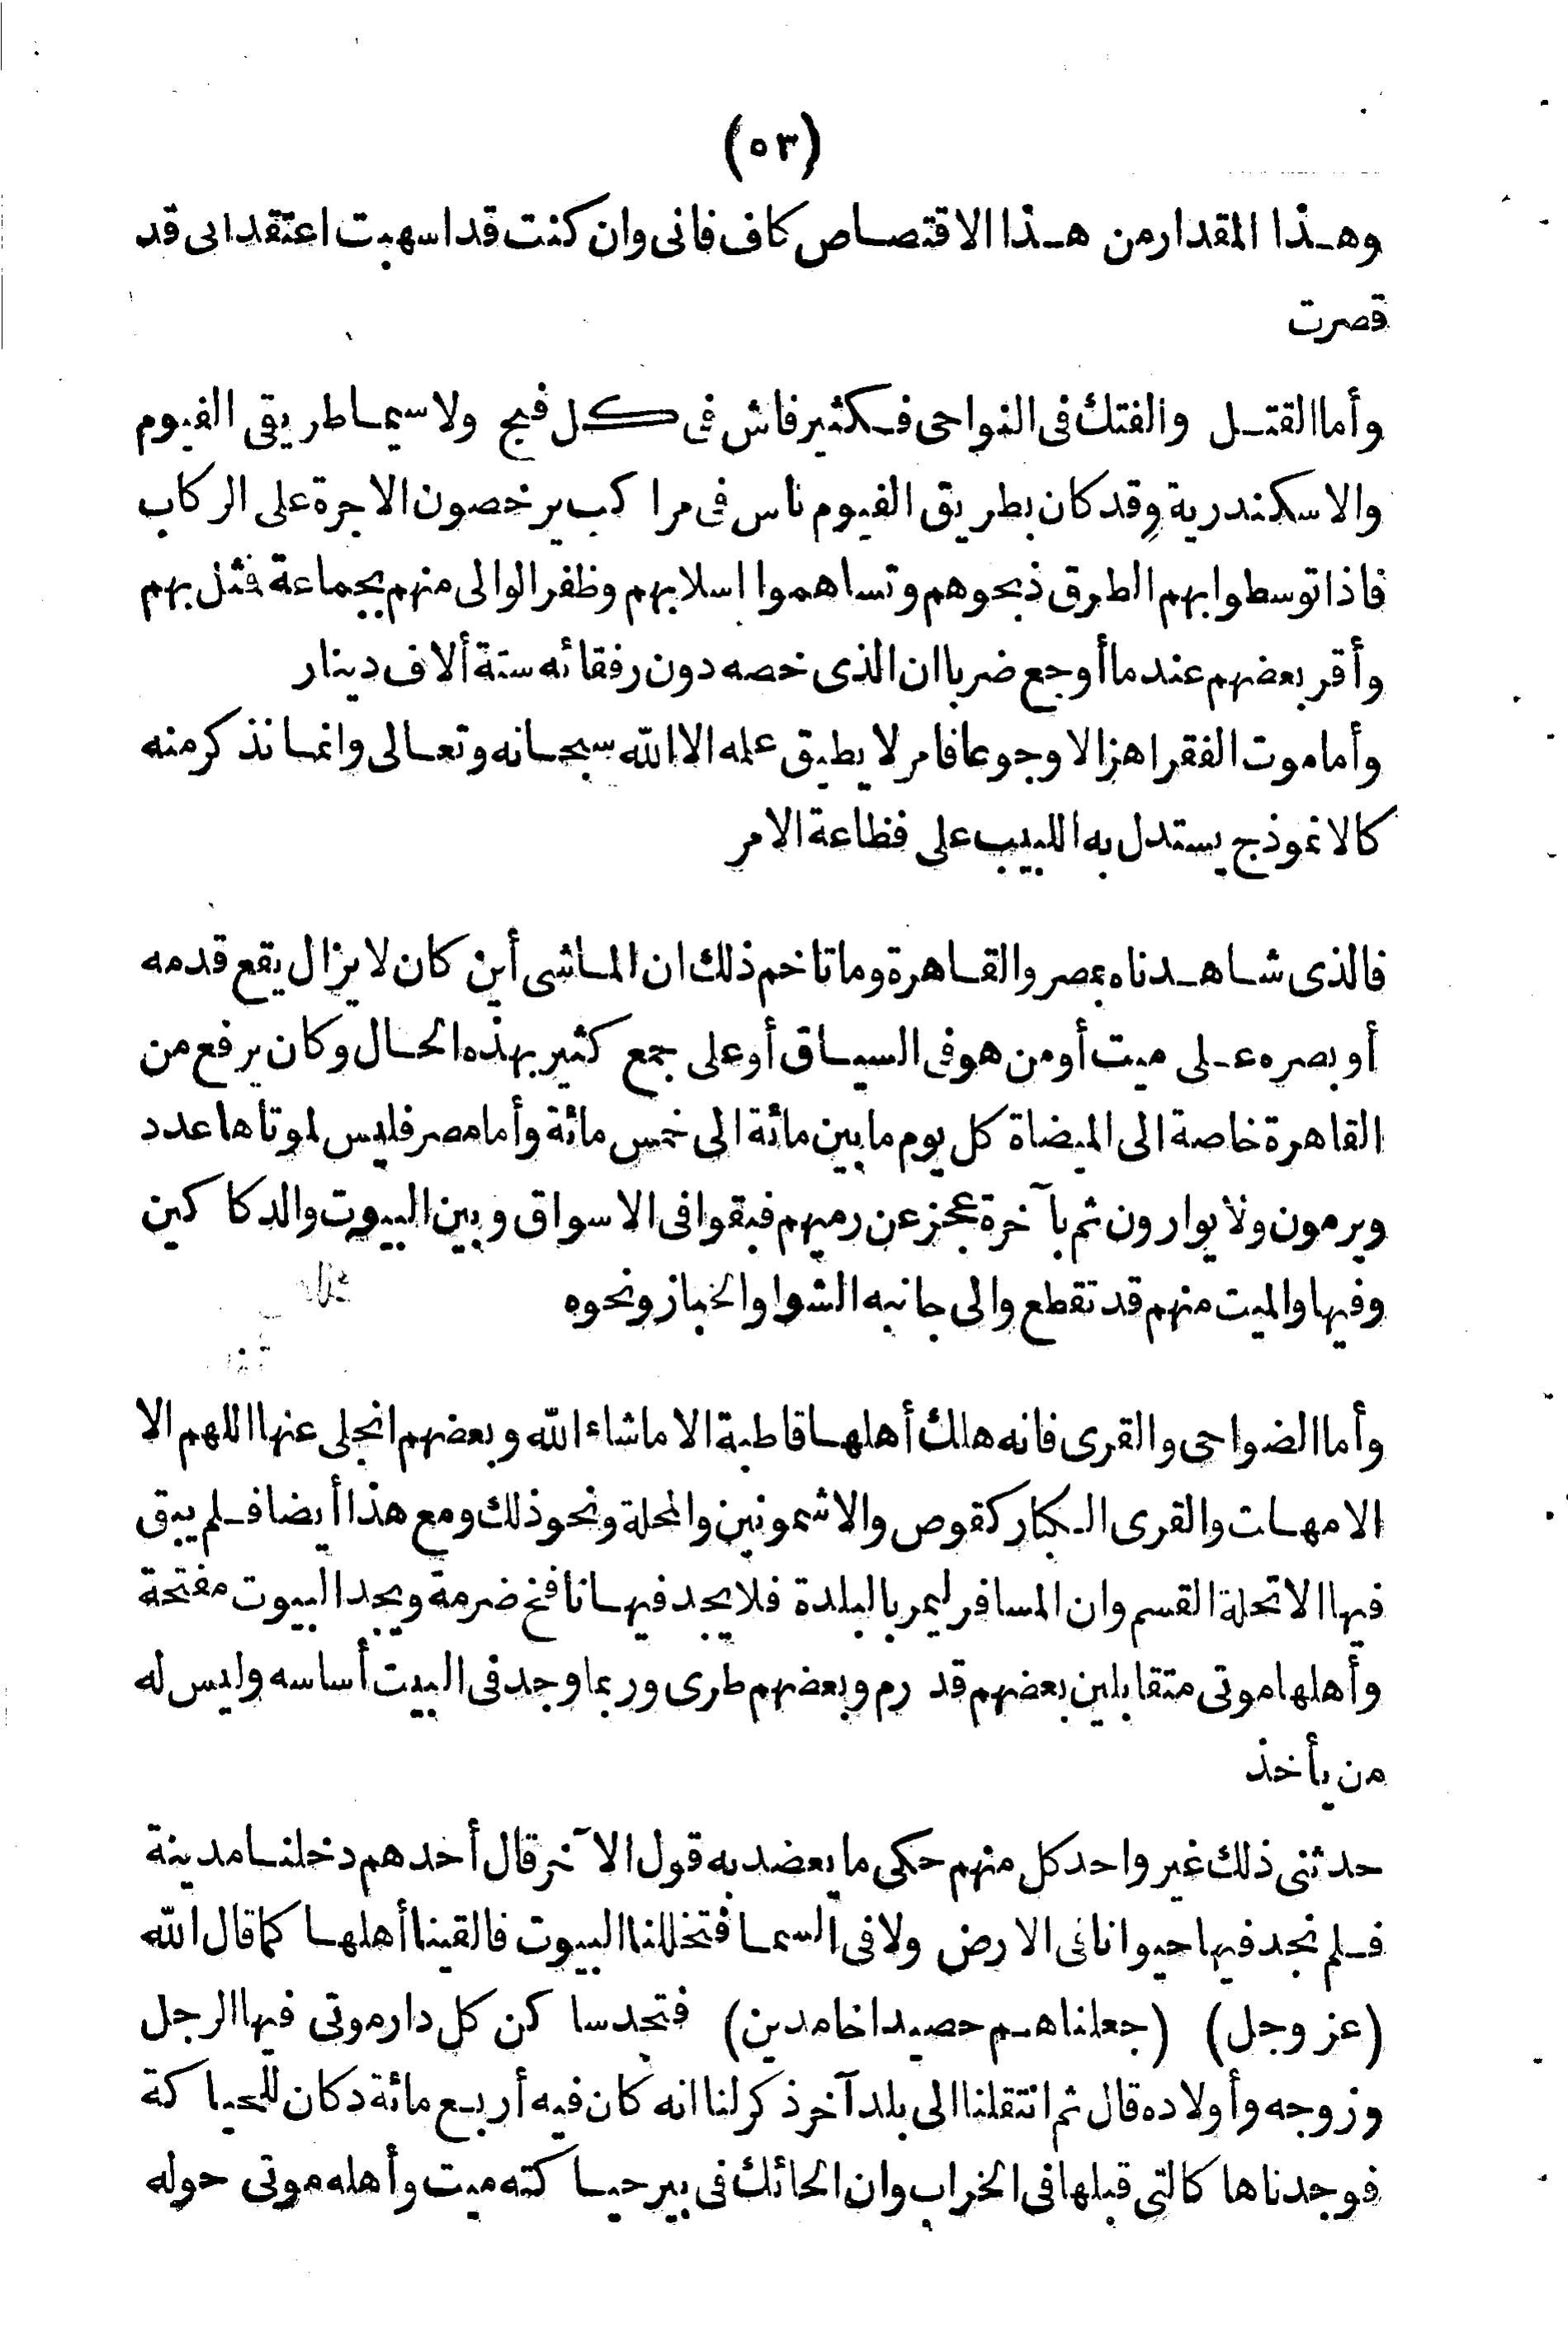 (٥٣)
وهذا المقدار من هذا الاقتصاص كاف فانى وان كنت قد اسهبت اعتقد انى قد
قصرت
وأما القتل والفتك فى النواحى فكثير فاش فى كل فج ولا سيما طريقى الفيوم
والاسكندرية وقد كان بطريق الفيوم ناس فى مراكب يرخصون الاجرة على الركاب
فاذا توسطوا بهم الطرق ذبحوهم وتساهموا اسلابهم وظفر الوالى منهم بجماعة فمثل بهم
وأقر بعضهم عندما أوجع ضربا ان الذى خصه دون رفقائه ستة ألاف دينار
وأما موت الفقرا هزالا وجوعا فامر لا يطيق علمه الا الله سبحانه وتعالى وانما نذكر منه
كالانموذج يستدل به اللبيب على فظاعة الامر
فالذى شاهدناه بمصر والقاهرة وما تاخم ذلك ان الماشى أين كان لا يزال يقع قدمه
أو بصره على ميت أو من هو فى السياق أو على جمع كثير بهذه الحال وكان يرفع من
القاهرة خاصة الى الميضاة كل يوم ما بين مائة الى خمس مائة وأما مصر فليس لموتاها عدد
ويرمون ولا يوارون ثم بآخرة عجز عن رميهم فبقوا فى الاسواق وبين البيوت والدكاكين
وفيها والميت منهم قد تقطع والى جانبه الشوا والخباز ونحوه
وأما الضواحى والقرى فانه هلك أهلها قاطبة الا ما شاء الله وبعضهم انجلى عنها اللهم الا
الامهات والقرى الكبار كقوص والاشمونين والمحلة ونحو ذلك ومع هذا أيضا فلم يبق
فيها الا تحلة القسم وان المسافر ليمر بالبلدة فلا يجد فيها نافخ ضرمة ويجد البيوت مفتحة
وأهلها موتى متقابلين بعضهم قد رم وبعضهم طرى وربما وجد فى البيت أساسه وليس له
من يأخذ
حدثنى ذلك غير واحد كل منهم حكى ما يعضد به قول الآخر قال أحدهم دخلنا مدينة
فلم نجد فيها حيوانا فى الارض ولا فى السما فتخللنا البيوت فالقينا أهلها كما قال الله
(عز وجل) (جعلناهم حصيدا خامدين) فتجد ساكن كل دار موتى فيها الرجل
وزوجه وأولاده قال ثم انتقلنا الى بلد آخر ذكر لنا انه كان فيه أربع مائة دكان للحياكة
فوجدناها كالتى قبلها فى الخراب وان الحائك فى بير حياكته ميت وأهله موتى حوله